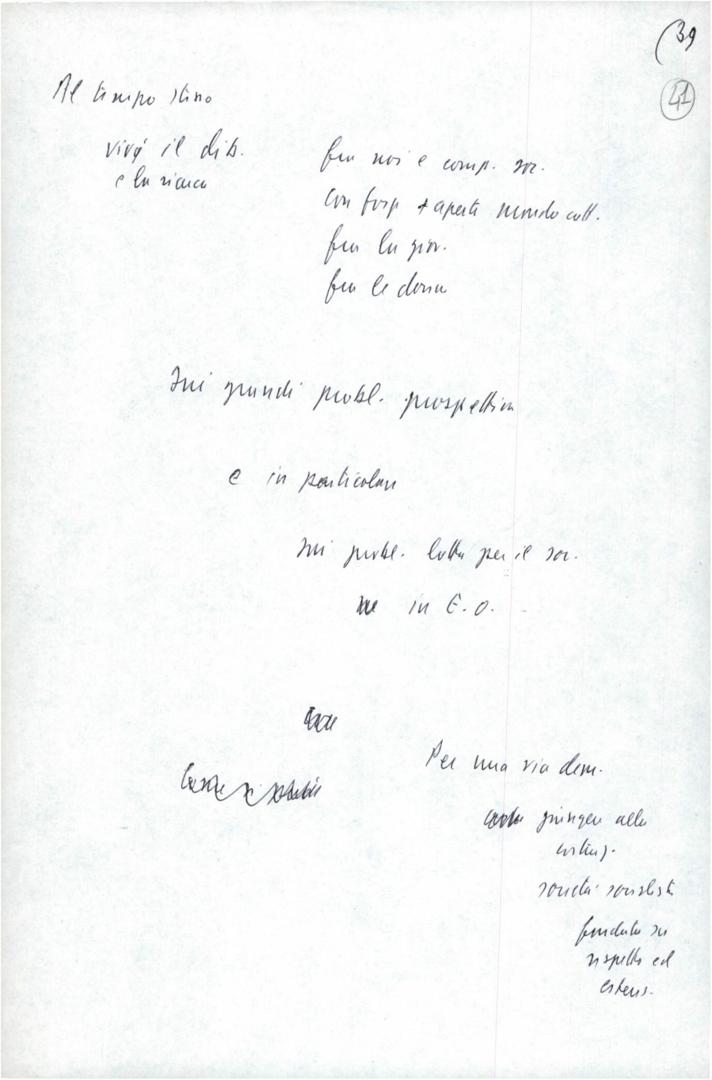 (39
41
Al tempo stesso
viva il dib.
e la ricerca
fra noi e comp. soc.
con forze + aperte mondo catt.
fra la giov.
fra le donne
sui grandi probl. prospettiva
e in particolare
sui probl. lotta per il soc.
in E.O.
Per una via dem.
giungere alla
costruz.
società socialista
fondata su
rispetto ed
estens.